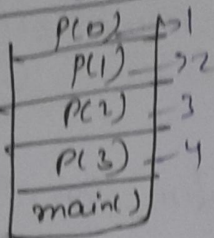 P(0) → 1
P(1) → 2
P(2) - 3
P(3) - 4
main()